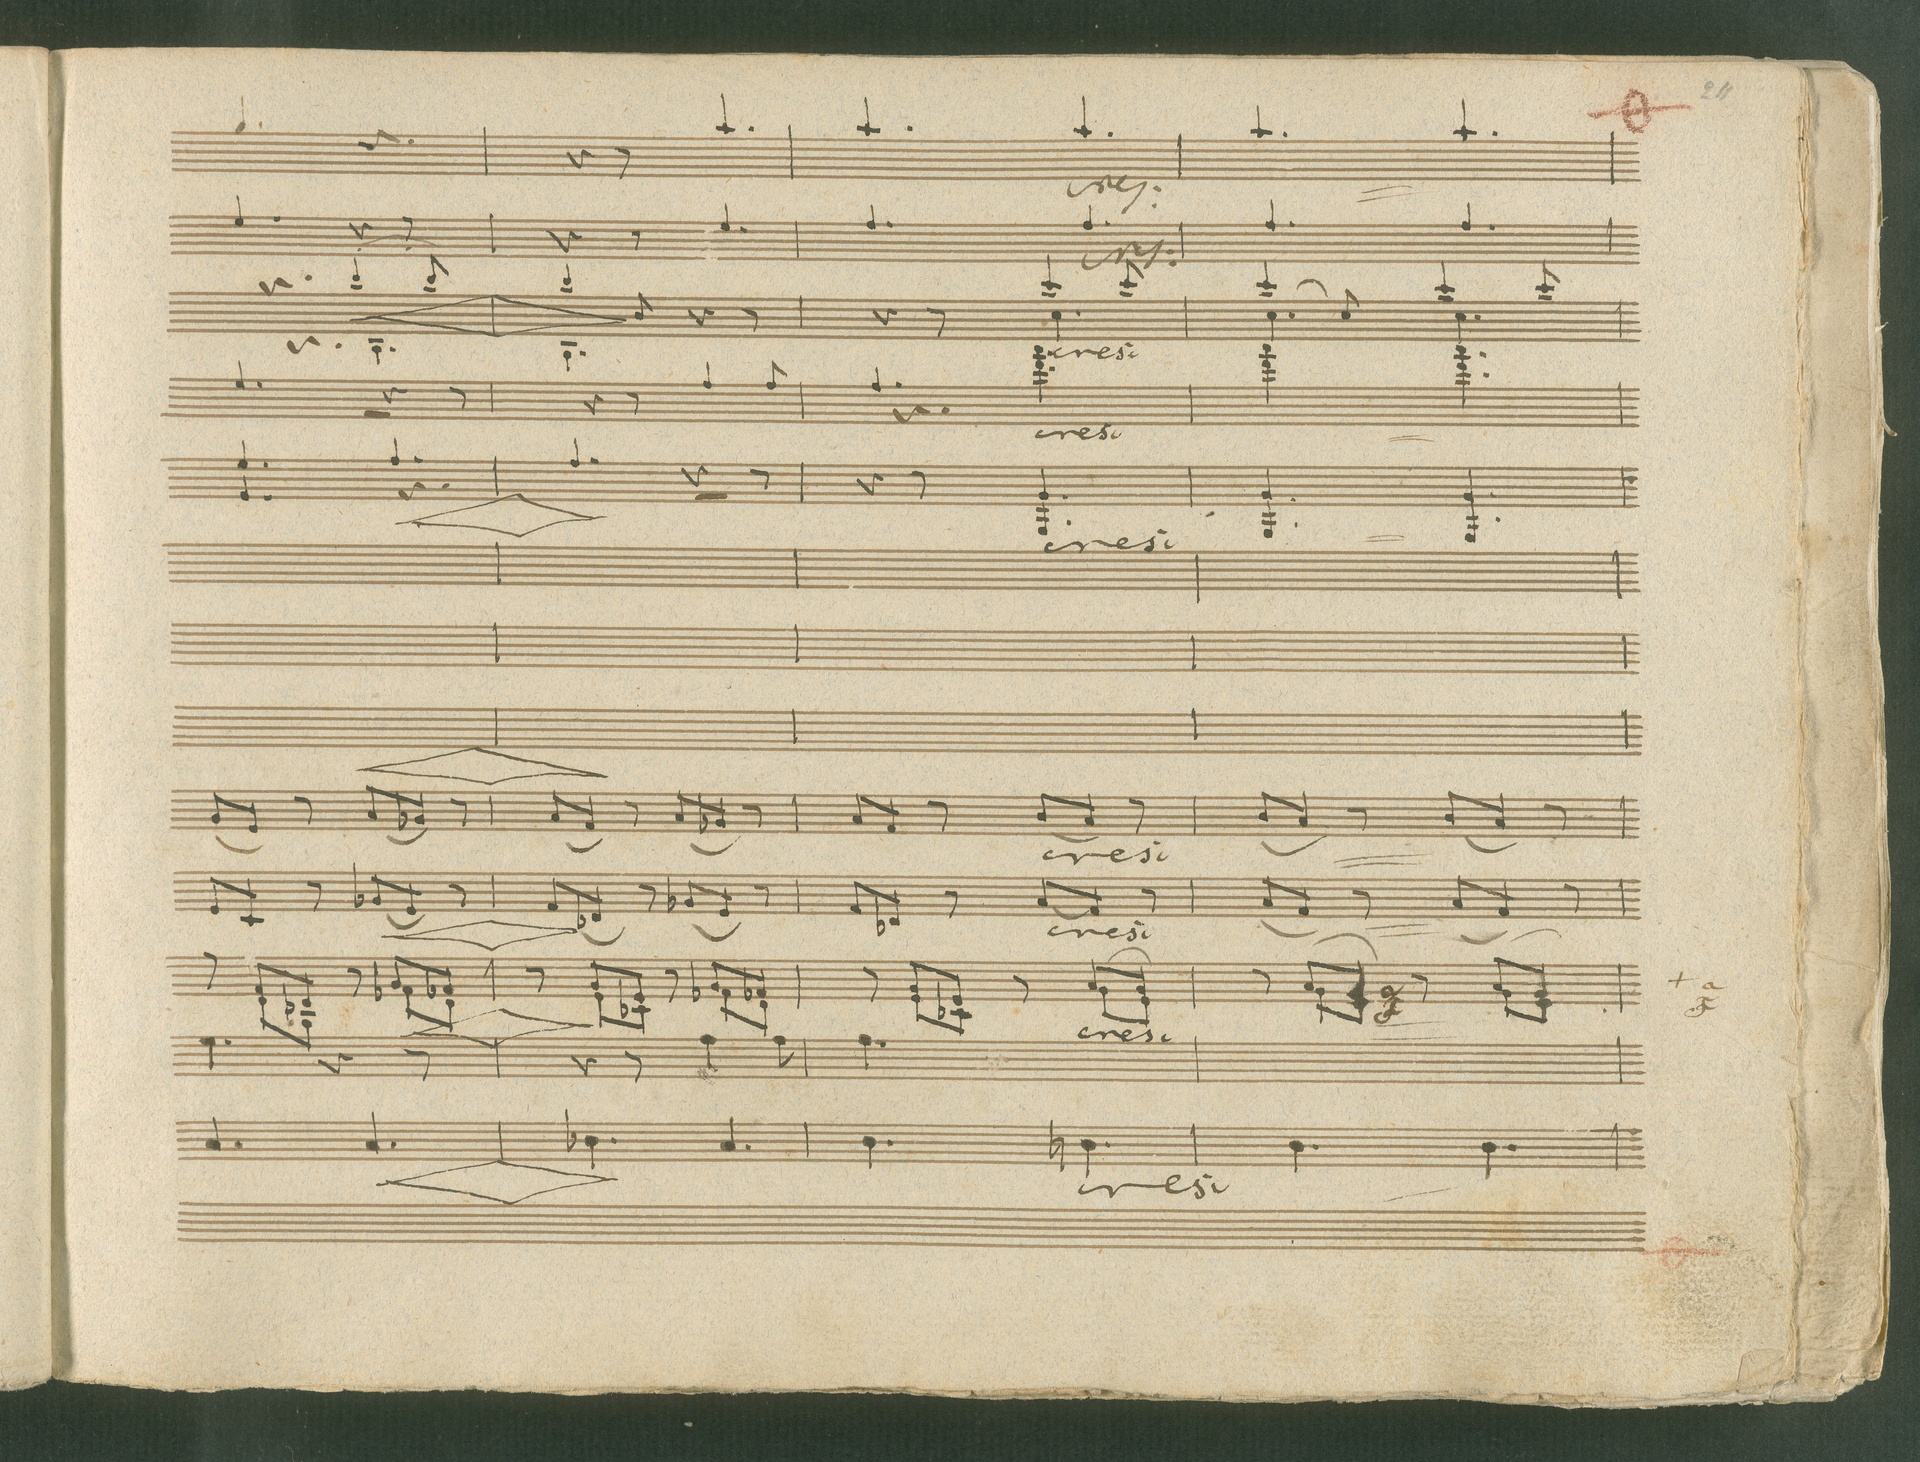 24
cresc:
cresc:
cresc
cresc
cresc
cresc
cresc
cresc
+ a
cresc